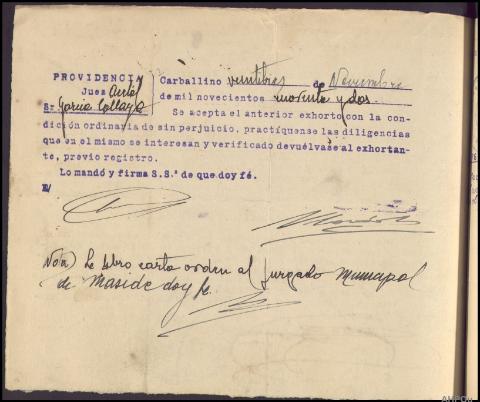 PROVIDENCIA
Juez Acctal
Sr García Collazo
Carballino veintitres de Noviembre
de mil novecientos cuarenta y dos.
Se acepta el anterior exhorto con la con-
dición ordinaria de sin perjuicio, practíquense las diligencias
que en el mismo se interesan y verificado devuélvase al exhortan-
te, previo registro.
Lo mandó y firma S.S.ª de que doy fé.
E/
Nota) Se libro carta orden al Juzgado Municipal
de Maside doy fe.